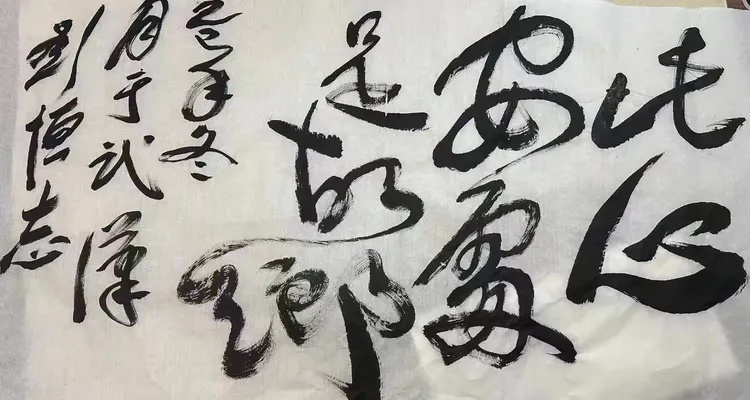 此心
安處
是故鄉
乙巳年冬
月于武漢
彭恒志